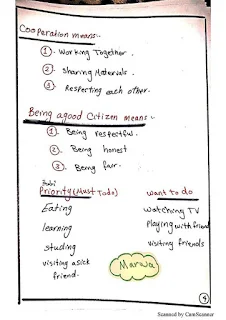 Cooperation means:-
1. Working Together.
2. Sharing Materials.
3. Respecting each other.
Being agood Citizen means:-
1. Being respectful.
2. Being honest
3. Being fair.
Priority (Must Todo)
want to do
Eating
watching TV
learning
playing with friend
studing
visiting friends
visiting asick
friend.
Marwa
4
Scanned by CamScanner